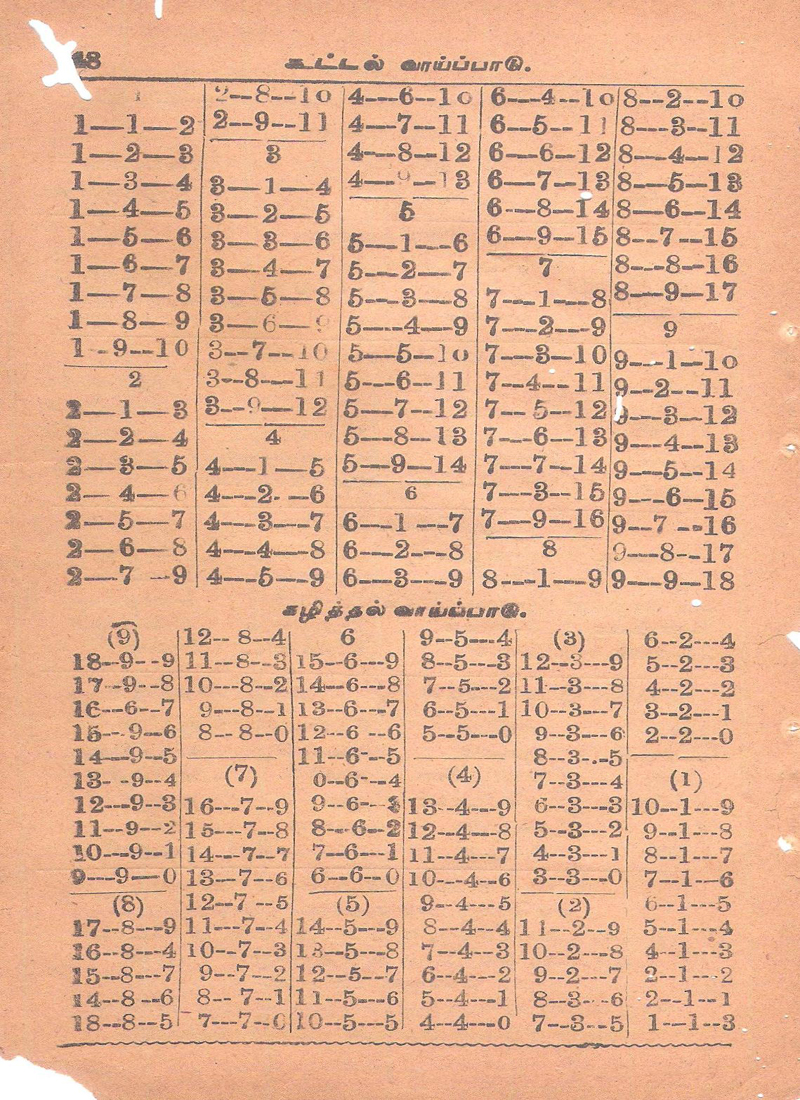 48 கூட்டல் வாய்ப்பாடு.
1
1—1—2
1—2—3
1—3—4
1—4—5
1—5—6
1—6—7
1—7—8
1—8—9
1-9--10
2
2—1—3
2—2—4
2—3—5
2—4—6
2—5—7
2—6—8
2—7--9
2--8--10
2--9--11
3
3—1—4
3—2—5
3—3—6
3—4—7
3—5—8
3—6—9
3--7--10
3--8--11
3--9--12
4
4—1—5
4---2--6
4---3---7
4---4---8
4---5---9
4---6--10
4---7---11
4---8---12
4---9--13
5
5---1---6
5---2---7
5---3---8
5---4---9
5---5--10
5---6---11
5---7---12
5---8---13
5---9---14
6
6---1---7
6---2---8
6---3---9
6---4--10
6---5---11
6---6--12
6---7--13
6---8--14
6---9--15
7
7---1---8
7---2---9
7---3--10
7---4---11
7--5---12
7---6--13
7---7--14
7---3--15
7---9--16
8
8---1---9
8--2--10
8---3--11
8---4--12
8---5--13
8---6--14
8--7--15
8---8--16
8---9--17
9
9---1--10
9--2--11
9---3--12
9---4--13
9---5--14
9---6--15
9--7--16
9---8--17
9---9--18
கழித்தல் வாய்ப்பாடு.
(9)
18--9--9
17--9--8
16--6--7
15--9--6
14---9--5
13--9--4
12---9--3
11--9--2
10---9--1
9---9---0
(8)
17--8---9
16--8---4
15--8---7
14--8--6
18--8--5
12--8--4
11---8--3
10---8--2
9---8--1
8--8--0
(7)
16---7--9
15---7--8
14---7--7
13--7--6
12--7--5
11---7--4
10--7--3
9--7--2
8--7--1
7---7--0
6
15--6---9
14--6---8
13--6---7
12--6--6
11--6--5
0--6---4
9--6---3
8---6--2
7--6---1
6--6--0
(5)
14--5---9
13--5---8
12--5--7
11--5---6
10--5---5
9--5---4
8--5---3
7--5---2
6--5---1
5--5---0
(4)
13--4---9
12--4---8
11--4---7
10--4--6
9--4---5
8---4--4
7--4--3
6--4---2
5--4---1
4--4---0
(3)
12--3---9
11--3---8
10--3---7
9--3---6
8--3---5
7--3---4
6--3---3
5--3---2
4--3---1
3--3---0
(2)
11--2--9
10--2---8
9--2---7
8--3---6
7--3---5
6--2---4
5--2---3
4--2---2
3--2---1
2--2---0
(1)
10--1---9
9--1---8
8--1---7
7--1---6
6--1---5
5--1---4
4--1---3
2--1---2
2--1---1
1--1--3